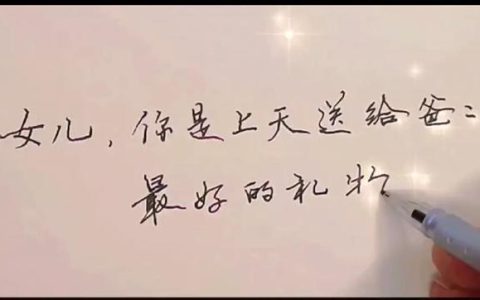 女儿，你是上天送给爸:
最好的礼物